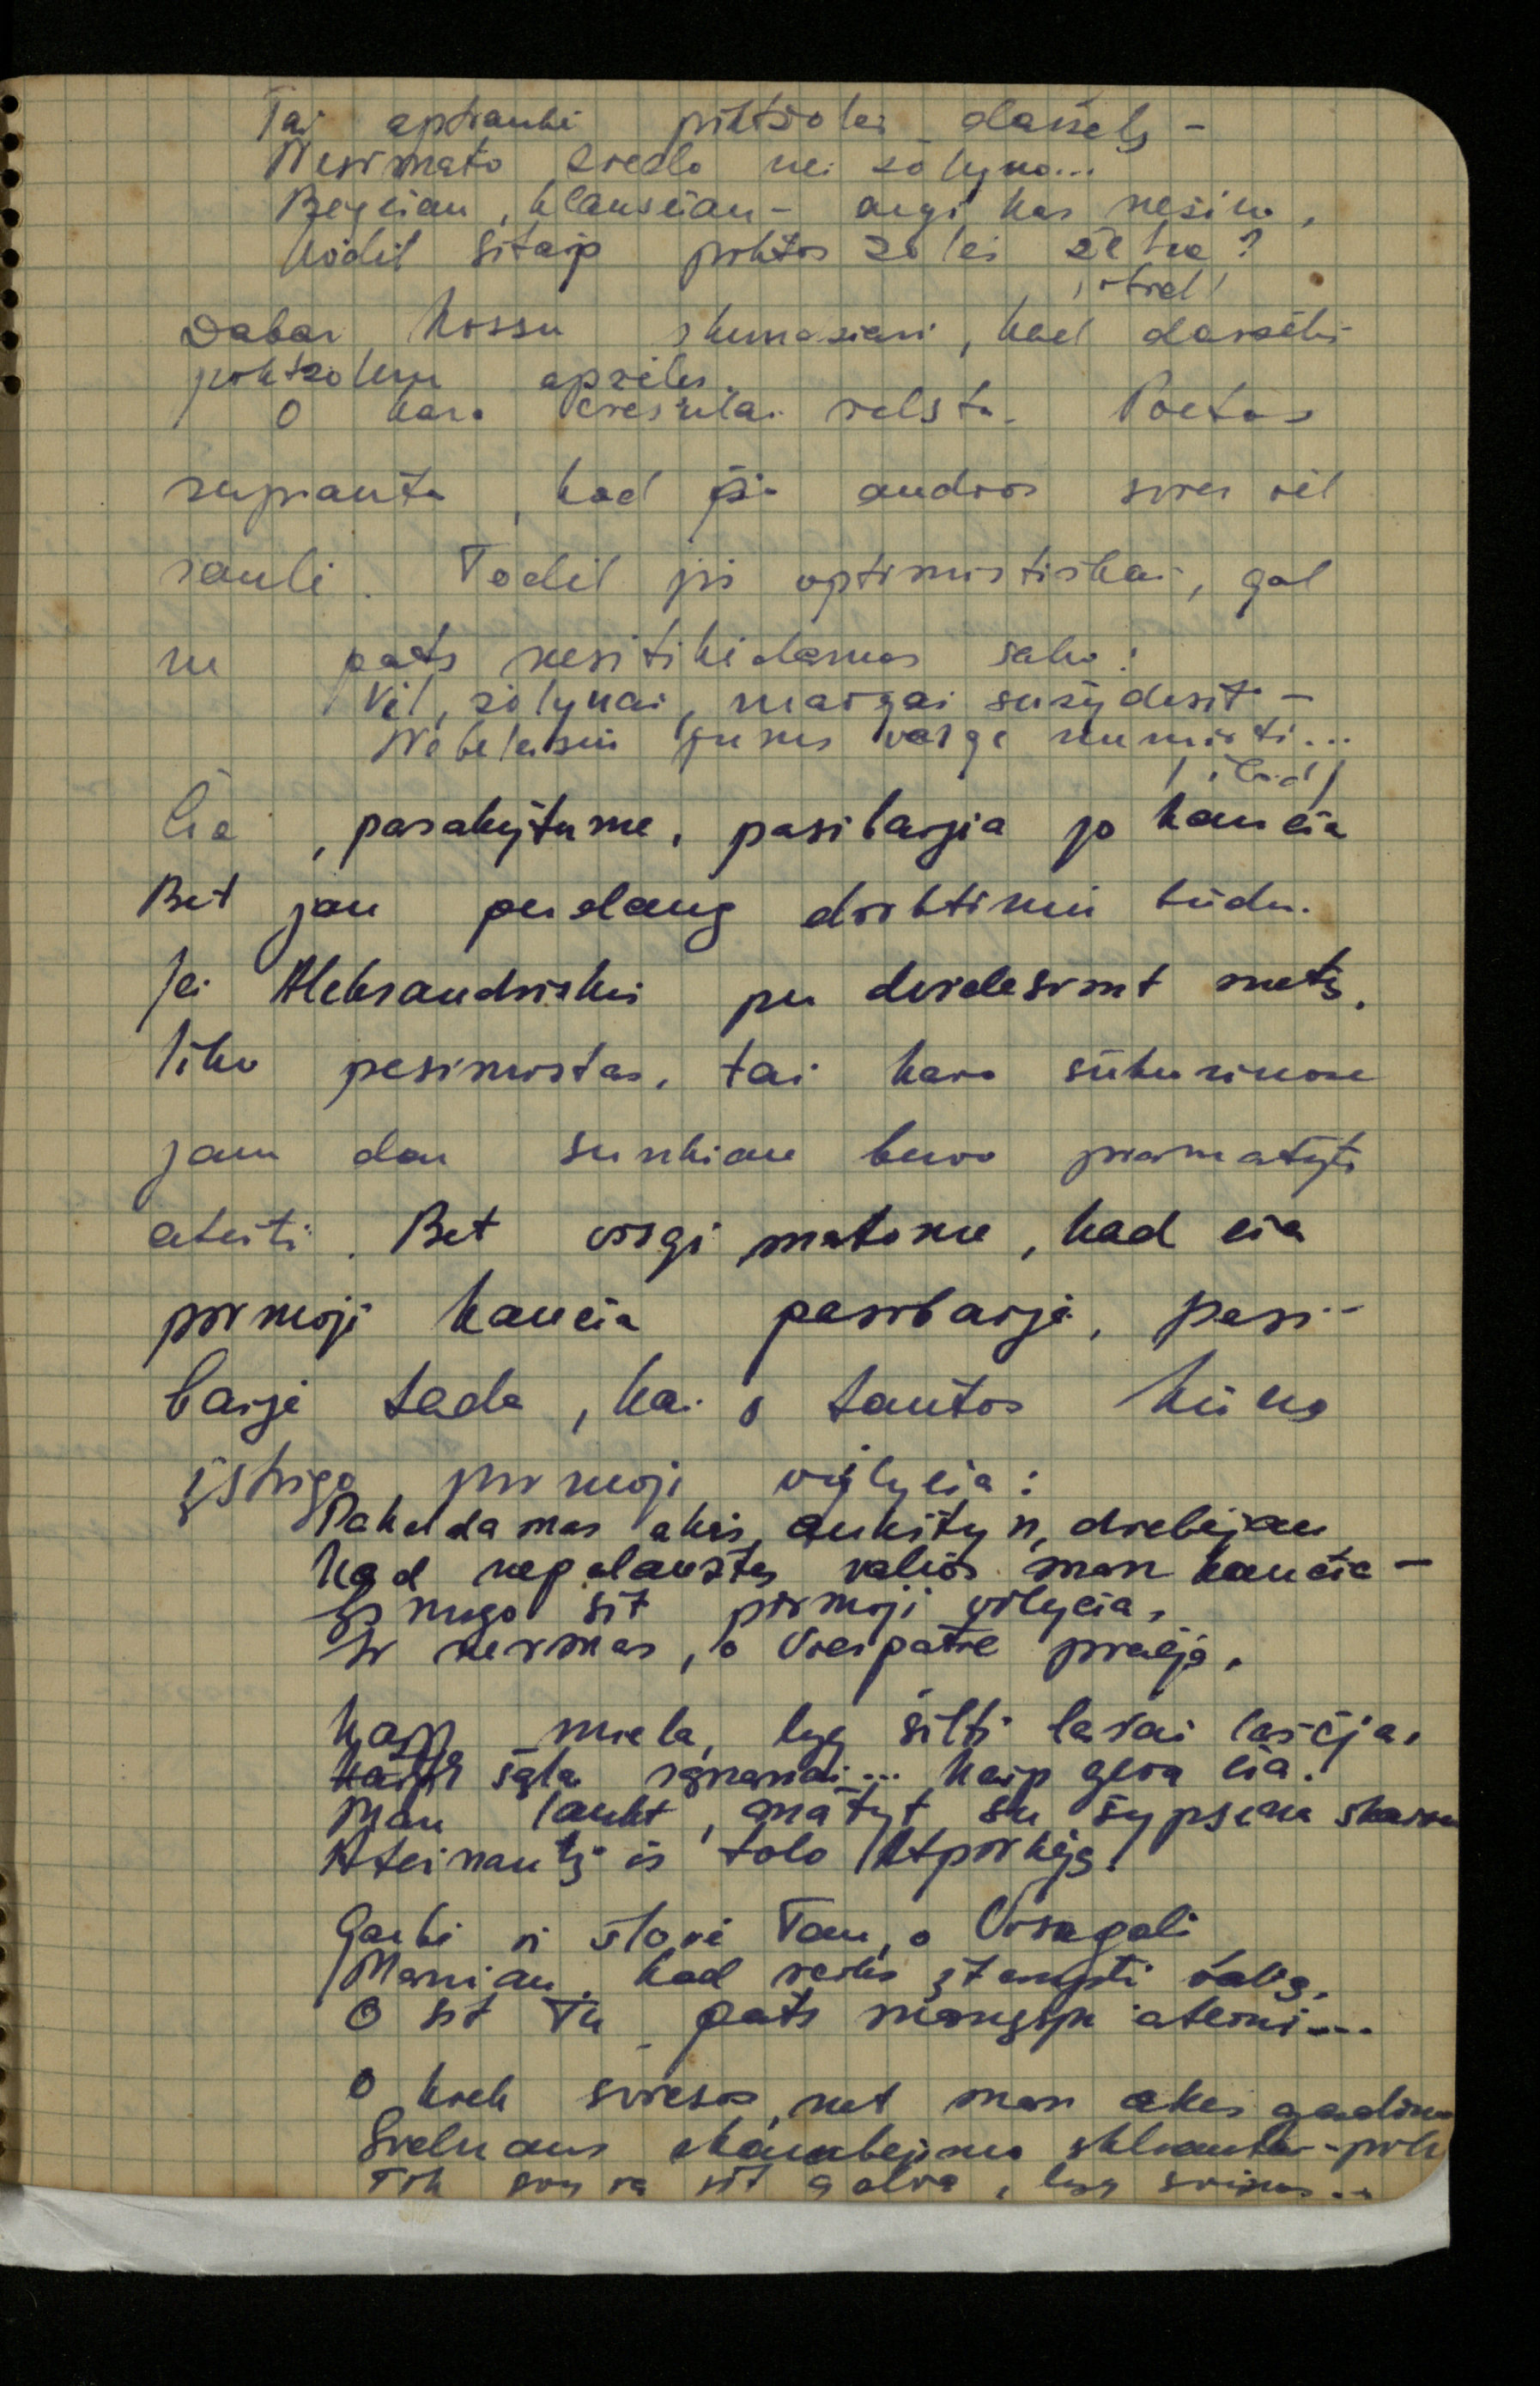 Tai aptraukė piktžolės darželį –
Nesimato žiedlo nei žolyno...
Bėgčiau, klausčiau – argi kas nežino,
Kodėl šitaip piktos žolės želia?
/ibid/
Dabar visu skundžiasi, kad darželis
piktžolėm apžėlęs.
O karo viesulai velstu. Poetas
supranta, kad po audros švies vėl
saulė. Todėl jis optimistiškai, gal
ne pats nesitikėdamas sako:
Vėl, žolynai, margai sužydėsit –
Nebeleisiu jums varge numirti...
/ibid/
Čia, pasakytume, pasibaigia jo kančia
Bet jau perdaug dirbtiniu būdu.
Jei Aleksandriškis per dvidešimt metų,
liko pesimistas, tai karo sūkuriuose
jam dar sunkiau buvo pramatyti
ateitį. Bet visgi matome, kad čia
pirmoji kančia pasibaigė, pasi-
baigė tada, kai į tautos kūną
įsmigo pirmoji vylyčia:
Pakeldamas akis aukštyn, drebėjau
Kad nepalaužtų valios man kančia –
Įsmigo šit pirmoji vylyčia,
Ir nerimas, o Viešpatie praėjo.
Kaip miela, lyg šilti lašai lašėja,
Kaip šąla sąnariai... Kaip gera čia.
Man laukt, matyt su šypsena skaisčia
Ateinantį iš tolo Atpirkėją.
Garbė ir šlovė Tau, o Visagali
Maniau, kad reiks įtempti valią,
O šit Tu pats mangsp ateini...
O kiek šviesos, net man akis gadina
Švelnaus skambėjimo sklidina - pilk
Tik svyra šit galva, lyg svinas...